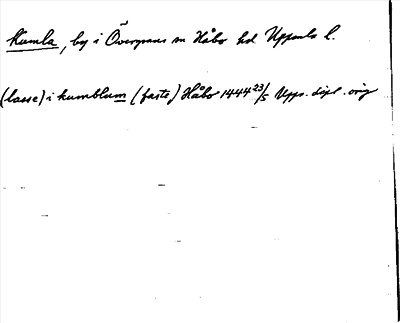 Kumla, by i Övergrans sn Håbo hd Uppsala l.
(lasse) i kumblum (faste) Håbo 1444 23/5 Upps. dipl. orig